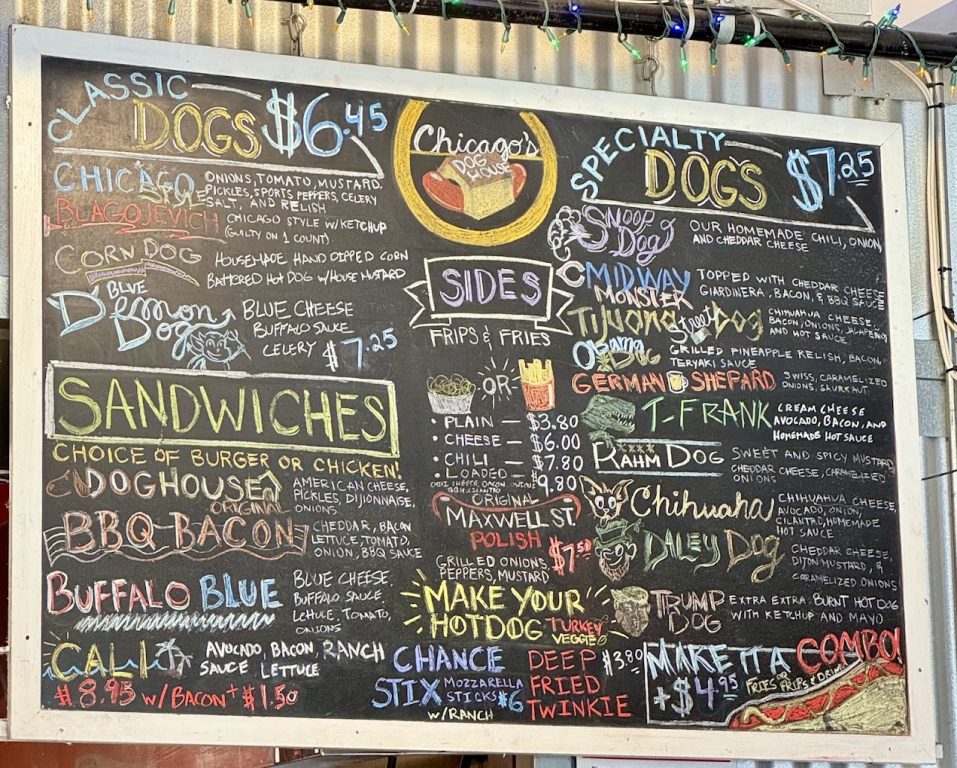 CLASSIC
DOGS $6.45
CHICAGO STYLE
ONIONS, TOMATO, MUSTARD,
PICKLES, SPORTS PEPPERS, CELERY
SALT, AND RELISH
BLAGOJEVICH
CHICAGO STYLE W/KETCHUP
(GUILTY ON 1 COUNT)
CORN DOG
HOUSEMADE HAND DIPPED CORN
BATTERED HOT DOG W/HOUSE MUSTARD
BLUE
Demon
Dog
BLUE CHEESE
BUFFALO SAUCE
CELERY $7.25
SANDWICHES
CHOICE OF BURGER OR CHICKEN!
DOGHOUSE
ORIGINAL
AMERICAN CHEESE,
PICKLES, DIJIONNAISE,
ONIONS
BBQ-BACON
CHEDDAR, BACON
LETTUCE, TOMATO,
ONION, BBQ SAUCE
BUFFALO BLUE
BLUE CHEESE,
BUFFALO SAUCE,
LETTUCE, TOMATO,
ONIONS
CALI
AVOCADO, BACON, RANCH
SAUCE LETTUCE
$8.95 W/BACON + $1.50
Chicago's
DOG
HOUSE
SIDES
FRIPS & FRIES
OR
• PLAIN — $3.80
• CHEESE — $6.00
• CHILI — $7.80
• LOADED — $9.80
ORIGINAL
MAXWELL ST.
POLISH
$7.50
GRILLED ONIONS,
PEPPERS, MUSTARD
MAKE YOUR
HOTDOG TURKEY
VEGGIE
CHANCE
STIX MOZZARELLA
STICKS $6
W/RANCH
DEEP $3.80
FRIED
TWINKIE
SPECIALTY
DOGS $7.25
SNOOP
Dog
OUR HOMEMADE CHILI, ONION,
AND CHEDDAR CHEESE
MIDWAY
MONSTER
TOPPED WITH CHEDDAR CHEESE
GIARDINERA, BACON, & BBQ SAUCE
TIJUANA Street Dog
CHIHUAHUA CHEESE,
BACON, ONIONS, JALAPEÑO
AND HOT SAUCE
Obama
DOG
GRILLED PINEAPPLE RELISH, BACON,
TERYAKI SAUCE
GERMAN SHEPARD
SWISS, CARAMELIZED
ONIONS, SAURKRAUT
T-FRANK
CREAM CHEESE
AVOCADO, BACON, AND
HOMEMADE HOT SAUCE
RAHM DOG
SWEET AND SPICY MUSTARD
CHEDDAR CHEESE, CARMELIZED
ONIONS
Chihuaha
CHIHUAHUA CHEESE,
AVOCADO, ONION,
CILANTRO, HOMEMADE
HOT SAUCE
DALEY DOG
CHEDDAR CHEESE,
DIJON MUSTARD, &
CARAMELIZED ONIONS
TRUMP
DOG
EXTRA EXTRA BURNT HOT DOG
WITH KETCHUP AND MAYO
MAKE IT A COMBO!
+$4.95 FRIES OR FRIPS & DRINK